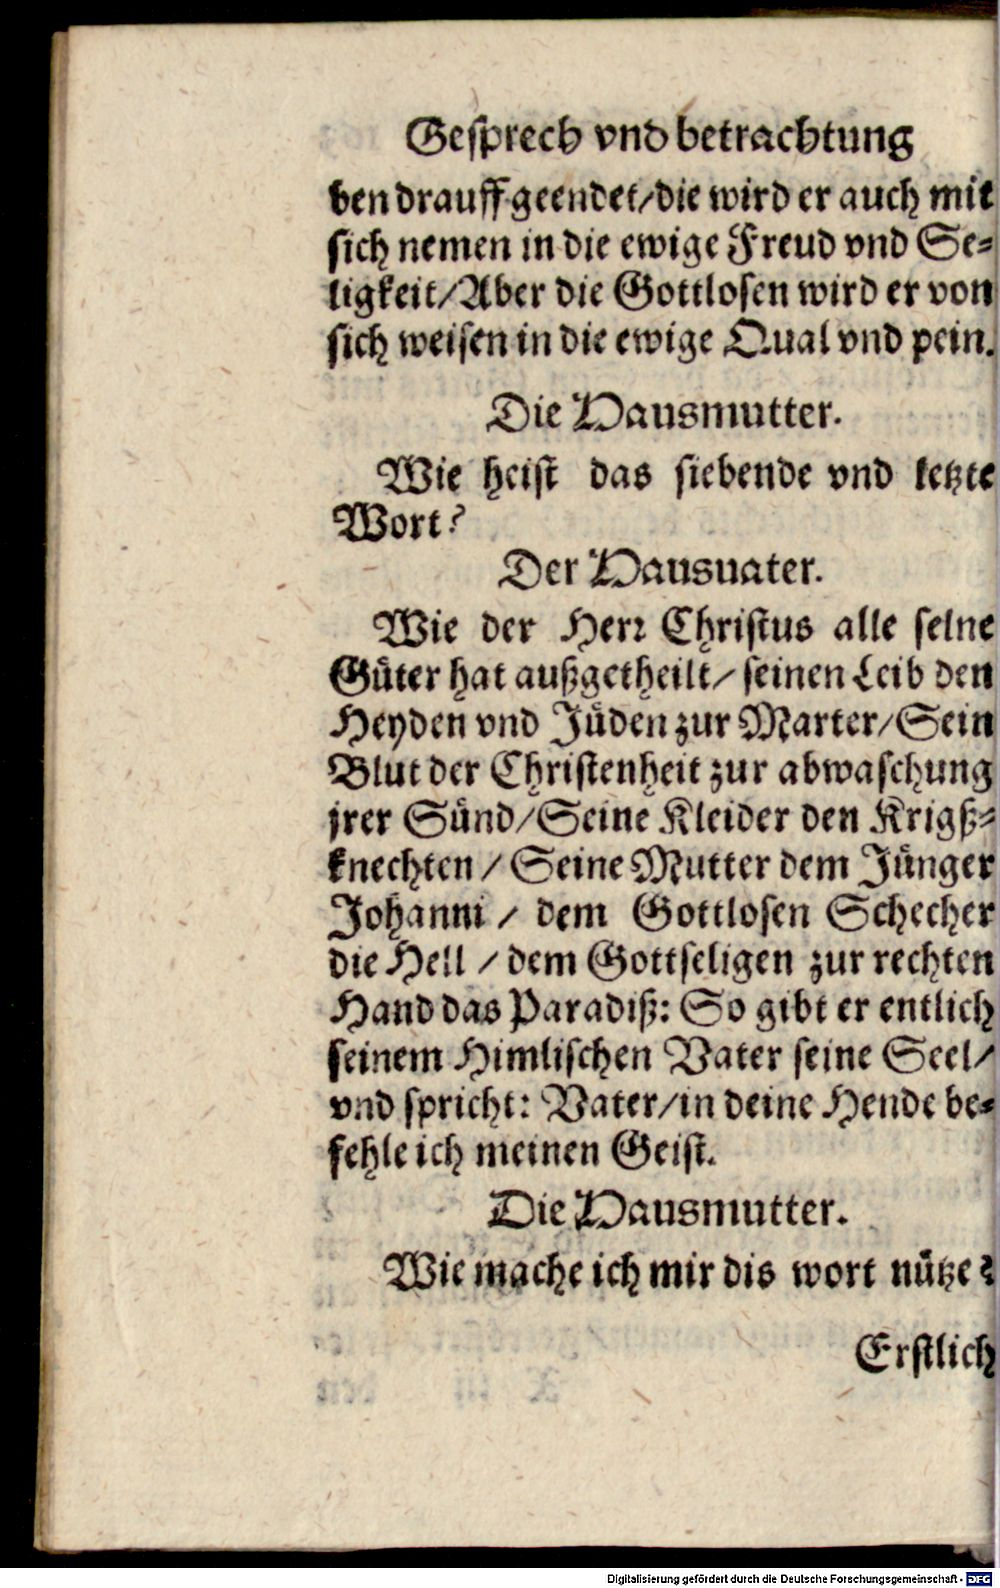 Gesprech vnd betrachtung
ben drauff geendet/die wird er auch mit
sich nemen in die ewige Freud vnd Se⸗
ligkeit/Aber die Gottlosen wird er von
sich weisen in die ewige Qual vnd pein.
Die Hausmutter.
Wie heist das siebende vnd letzte
Wort?
Der Hausuater.
Wie der Herr Christus alle seine
Güter hat außgetheilt/ seinen Leib den
Heyden vnd Jüden zur Marter/Sein
Blut der Christenheit zur abwaschung
jrer Sünd/Seine Kleider den Krigß⸗
knechten / Seine Mutter dem Jünger
Johanni / dem Gottlosen Schecher
die Hell / dem Gottseligen zur rechten
Hand das Paradiß: So gibt er entlich
seinem Himlischen Vater seine Seel/
vnd spricht: Vater/in deine Hende be⸗
fehle ich meinen Geist.
Die Hausmutter.
Wie mache ich mir dis wort nütze?
Erstlich
Digitalisierung gefördert durch die Deutsche Forschungsgemeinschaft - DFG